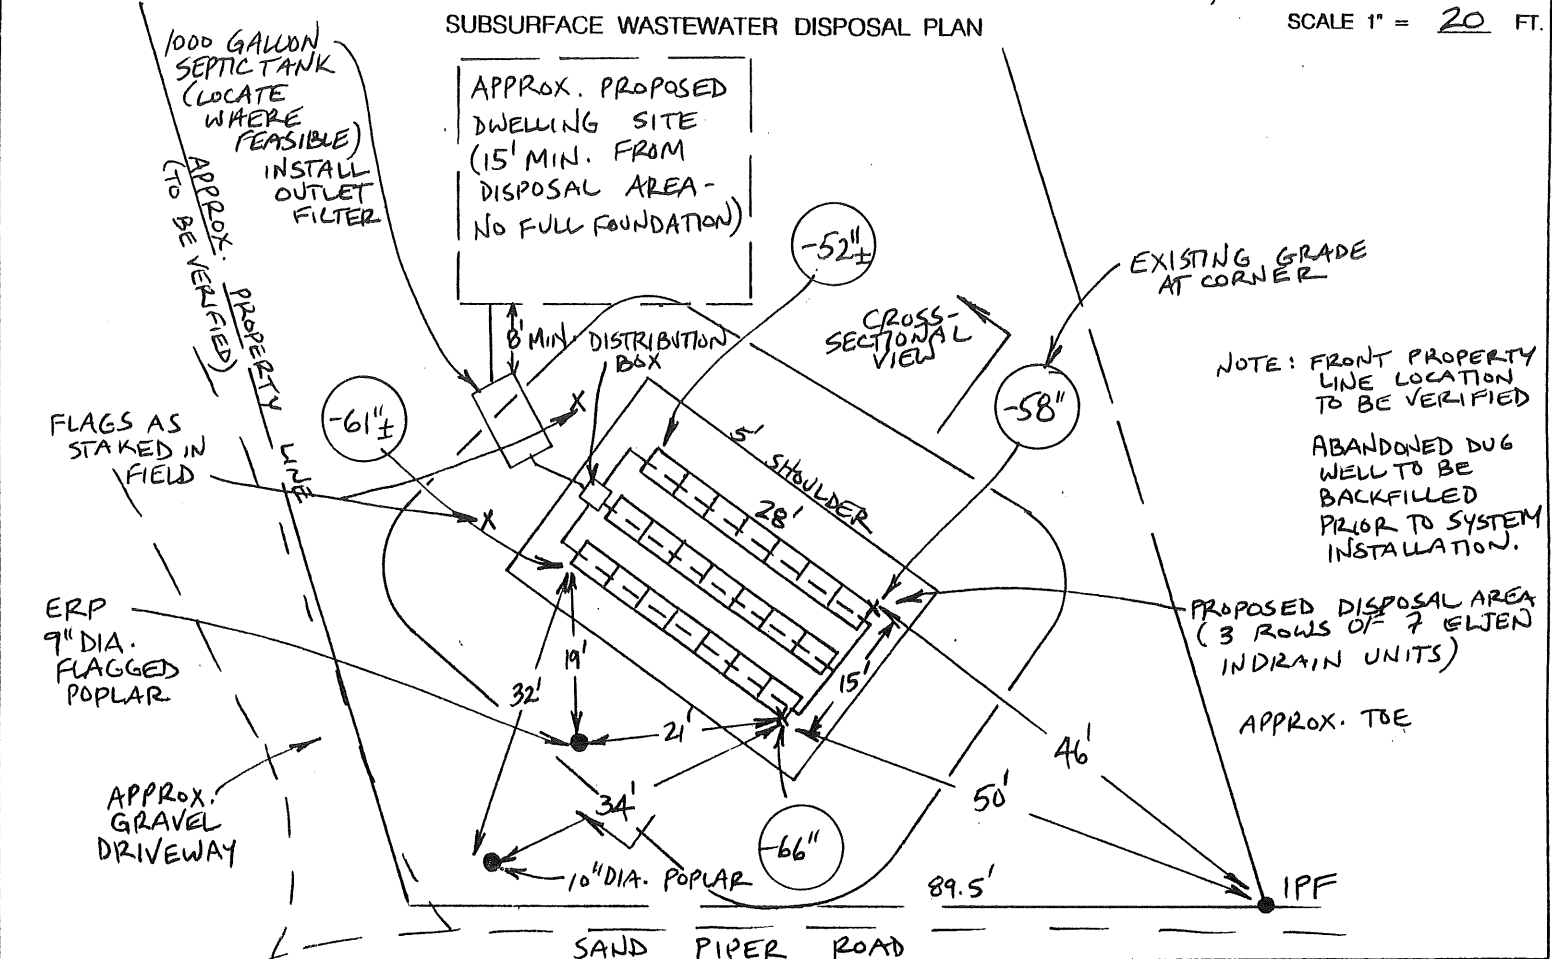 SUBSURFACE WASTEWATER DISPOSAL PLAN
SCALE 1" = 20 FT.
1000 GALLON
SEPTIC TANK
(LOCATE
WHERE
FEASIBLE)
INSTALL
OUTLET
FILTER
APPROX. PROPOSED
DWELLING SITE
(15' MIN. FROM
DISPOSAL AREA-
NO FULL FOUNDATION)
APPROX. PROPERTY LINE
(TO BE VERIFIED)
-52"±
EXISTING GRADE
AT CORNER
CROSS-
SECTIONAL
VIEW
8' MIN.
DISTRIBUTION
BOX
-61"±
-58"
NOTE: FRONT PROPERTY
LINE LOCATION
TO BE VERIFIED
ABANDONED DUG
WELL TO BE
BACKFILLED
PRIOR TO SYSTEM
INSTALLATION.
FLAGS AS
STAKED IN
FIELD
X
X
5'
SHOULDER
28'
X
X
ERP
9" DIA.
FLAGGED
POPLAR
PROPOSED DISPOSAL AREA
(3 ROWS OF 7 ELJEN
INDRAIN UNITS)
APPROX. TOE
19'
32'
21'
15'
46'
50'
34'
-66"
APPROX.
GRAVEL
DRIVEWAY
10" DIA. POPLAR
89.5'
IPF
SAND PIPER ROAD